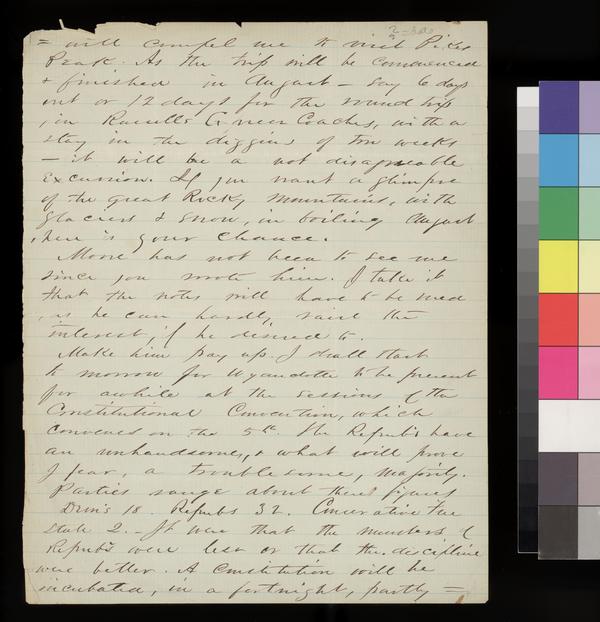 = will compel me to visit Pikes
Peak. As the trip will be commenced
& finished in August - say 6 days
out or 12 days for the round trip
in Russells Concern Coaches, with a
stay in the diggins of two weeks
- it will be a not disagreeable
excursion. If you want a glimpse
of the great Rocky Mountains, with
glaciers & snow, in boiling August
, here is your chance.
Moore has not been to see me
since you wrote him. I take it
that the notes will have to be sued
, as he can hardly raise the
interest, if he desired to.
Make him pay up. I shall start
to morrow for Wyandotte to be present
for awhile at the sessions of the
Constitutional Convention, which
convenes on the 5th. The Repubs have
an unhandsome, & what will prove
I fear, a troublesome, majority.
Parties range about these figures
Dem's 18. Repubs 32. Conservative Free
state 2. - If were that the numbers of
Repub's were less or that the discipline
were better. A Constitution will be
incubated, in a fortnight, partly =